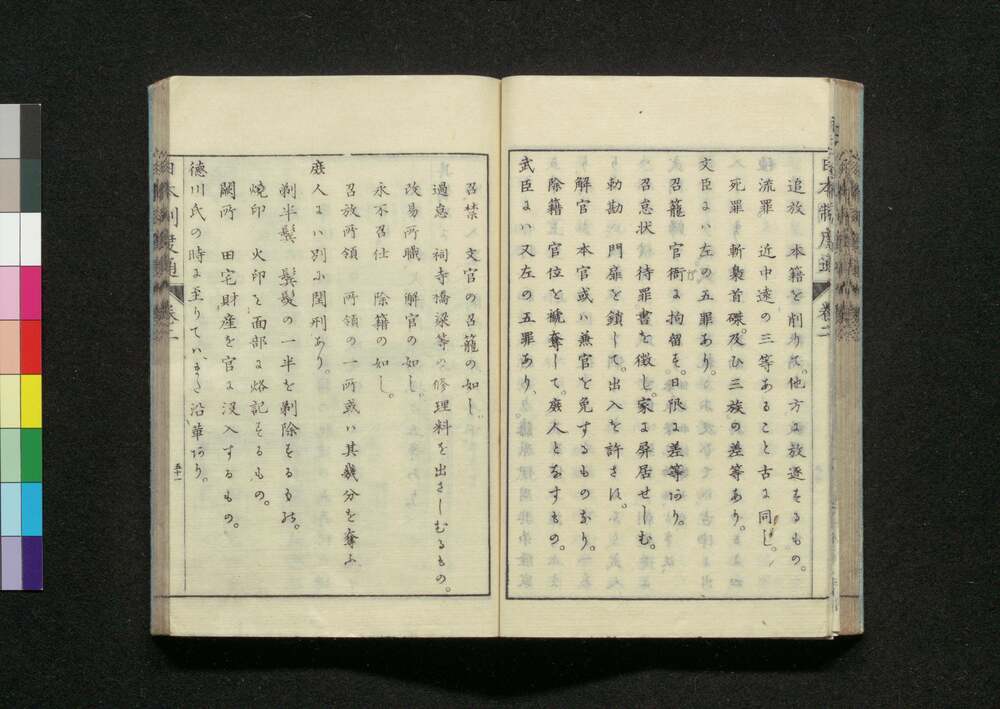 追放　本籍を削りて。他方に放逐をるもの。
流罪　近中遠の三等あること古に同し。
死罪　斬梟首磔。及ひ三族の差等あり。
文臣には左の五罪あり。
召籠　官衙に拘留を。日限に差等あり。
召怠状　待罪書を徴し。家に屏居せしむ。
勅勘　門扉を鎖して。出入を許さす。
解官　本官或は兼官を免するものなり。
除籍　官位を褫奪して。庶人となすもの。
武臣には又左の五罪あり。
召禁　文官の召籠の如し。
過怠　祠寺橋梁等の修理料を出さしむるもの。
改易所職　解官の如し。
永不召仕　除籍の如し。
召放所領　所領の一所或は其幾分を奪ふ
庶人には別に閏刑あり。
剃半髪　鬢髪の一半を剃除をるもの。
燒印　火印を面部に烙記をるもの。
闕所　田宅財産を官に没入するもの。
徳川氏の時に至りては、また沿革あり。
日本制度通
卷二
五十一